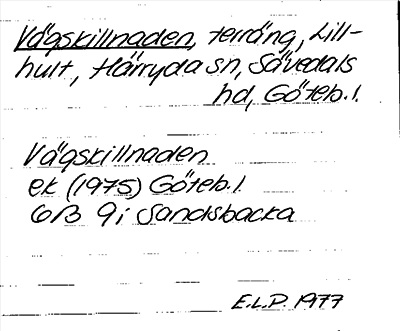 Vägskillnaden, terräng, Lill-
hult, Härryda sn, Sävedals
hd, Göteb. l.
Vägskillnaden
ek (1975) Göteb. l.
6B 9i Sandsbacka
E.L.P. 1977